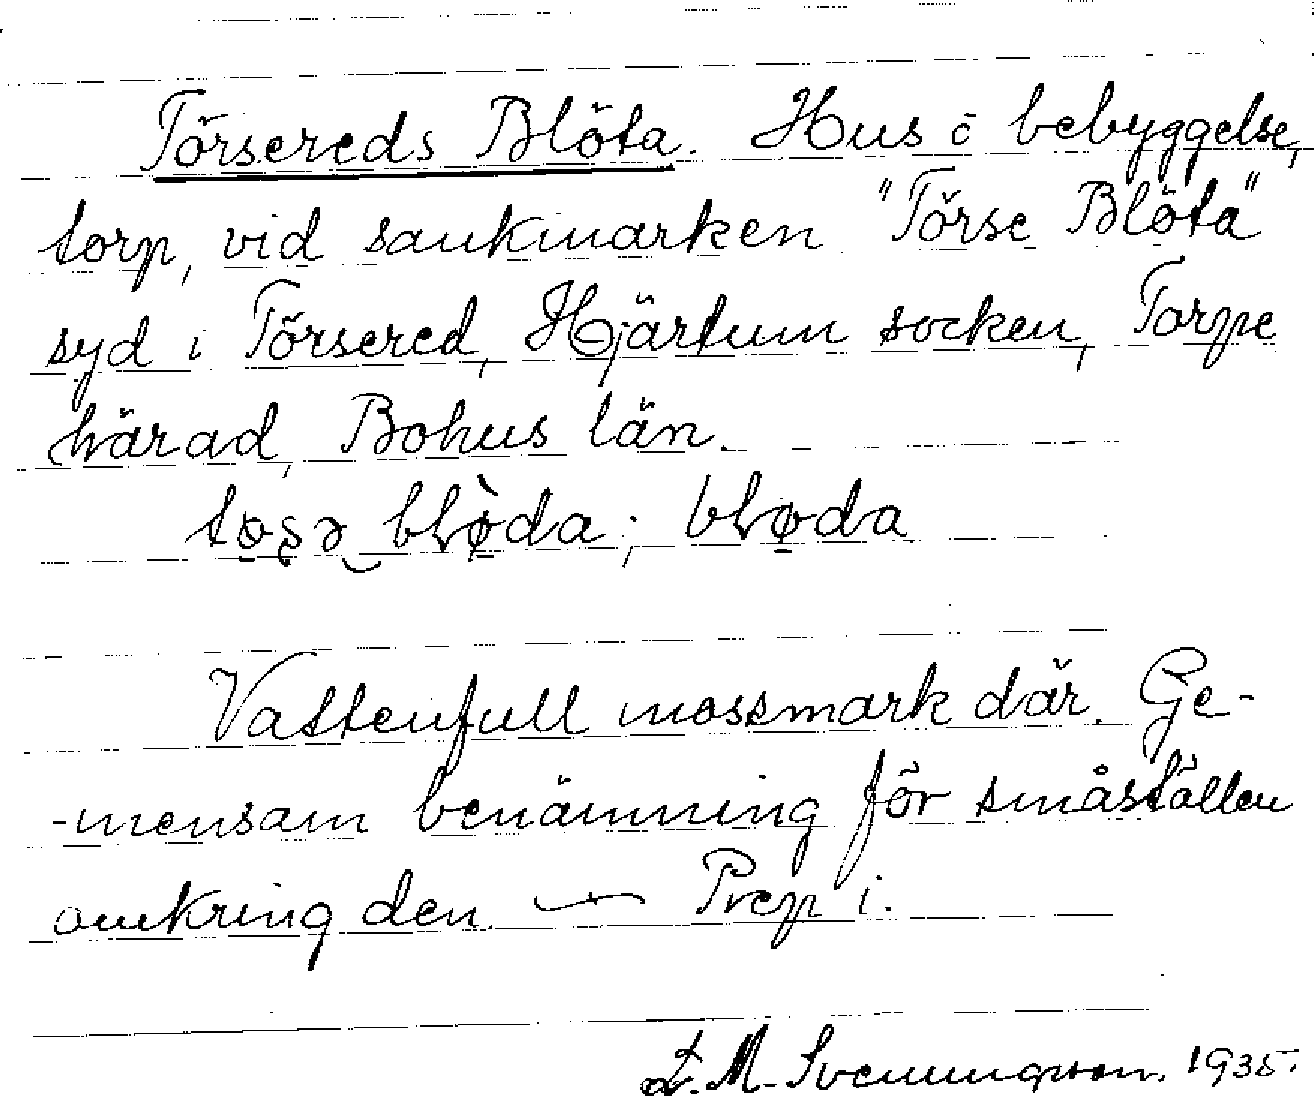 Törsereds Blöta. Hus o bebyggelse,
torp, vid sankmarken "Törse Blöta"
syd i Törsered, Hjärtum socken, Torpe
härad, Bohus län.
blø̀da; bløda
Vattenfull mossmark där. Ge-
-mensam benämning för småställen
omkring den. — Prep i.
L. M. Svenungsson. 1935.